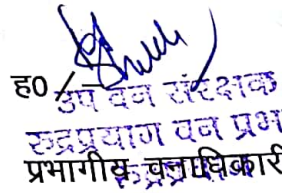 ह0/-
उप वन संरक्षक
रुद्रप्रयाग वन प्रभ
प्रभागीय वनाधिकारी